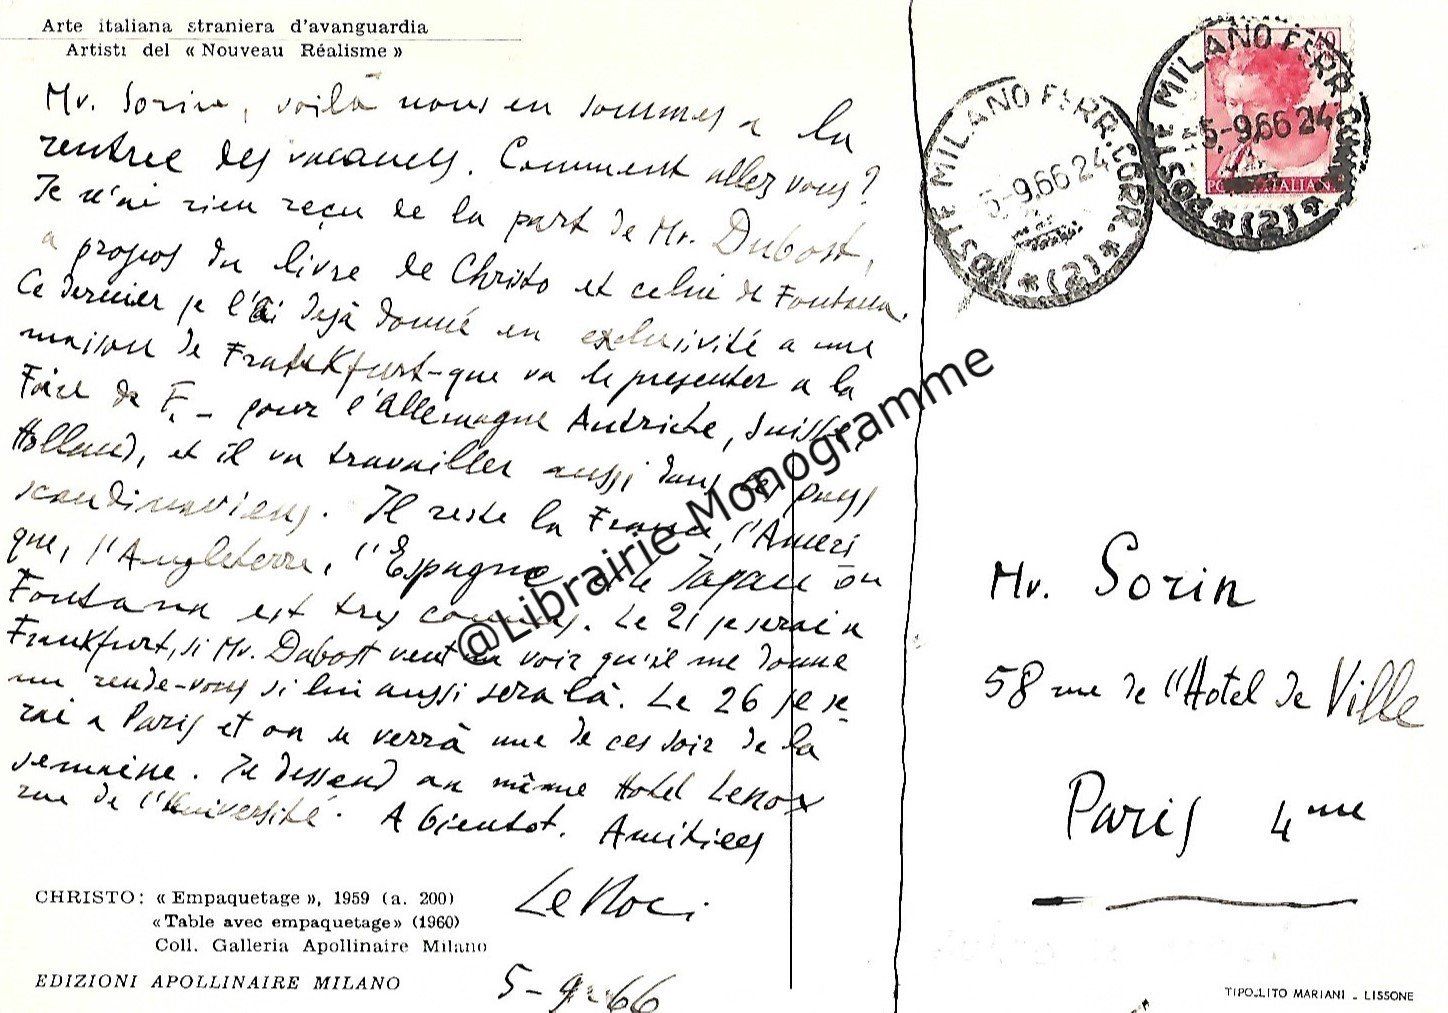 Arte italiana straniera d'avanguardia
Artisti del « Nouveau Réalisme »
Mr. Sorin, voilà nous en sommes a la
rentree des vacances. Comment allez vous?
Je n'ai rien reçu de la part de Mr. Dubost,
a propos du livre de Christo et celui de Fontana.
Ce dernier je l'ai dejà donné en exclusivité a une
maison de Frankfurt-que va le presenter a la
Foire de F. - pour l'Allemagne Autriche, Suisse,
Holland, et il va travailler aussi dans le pays
scandinaviens. Il reste la France, l'Ameri
que, l'Angleterre, l'Espagne et le Japan ou
Fontana est tres connus. Le 21 je serai a
Frankfurt, si Mr. Dubost veut me voir qu'il me donne
un rende-vous si lui aussi sera là. Le 26 je se-
rai a Paris et on se verrà une de ces soir de la
semaine. Je dessend au même Hotel Lenox
rue de l'Université. A bientot. Amitiees
Le Noci
5-9-66
CHRISTO: « Empaquetage », 1959 (a. 200)
« Table avec empaquetage» (1960)
Coll. Galleria Apollinaire Milano
EDIZIONI APOLLINAIRE MILANO
POSTE MILANO FERR. CORR. * (2) *
5-9.66 24
POSTE MILANO FERR. CORR. * (2) *
5-9.66 24
40
POSTE ITALIANE
Mr. Sorin
58 rue de l'Hotel de Ville
Paris 4me
TIPO-LITO MARIANI - LISSONE
@Librairie Monogramme